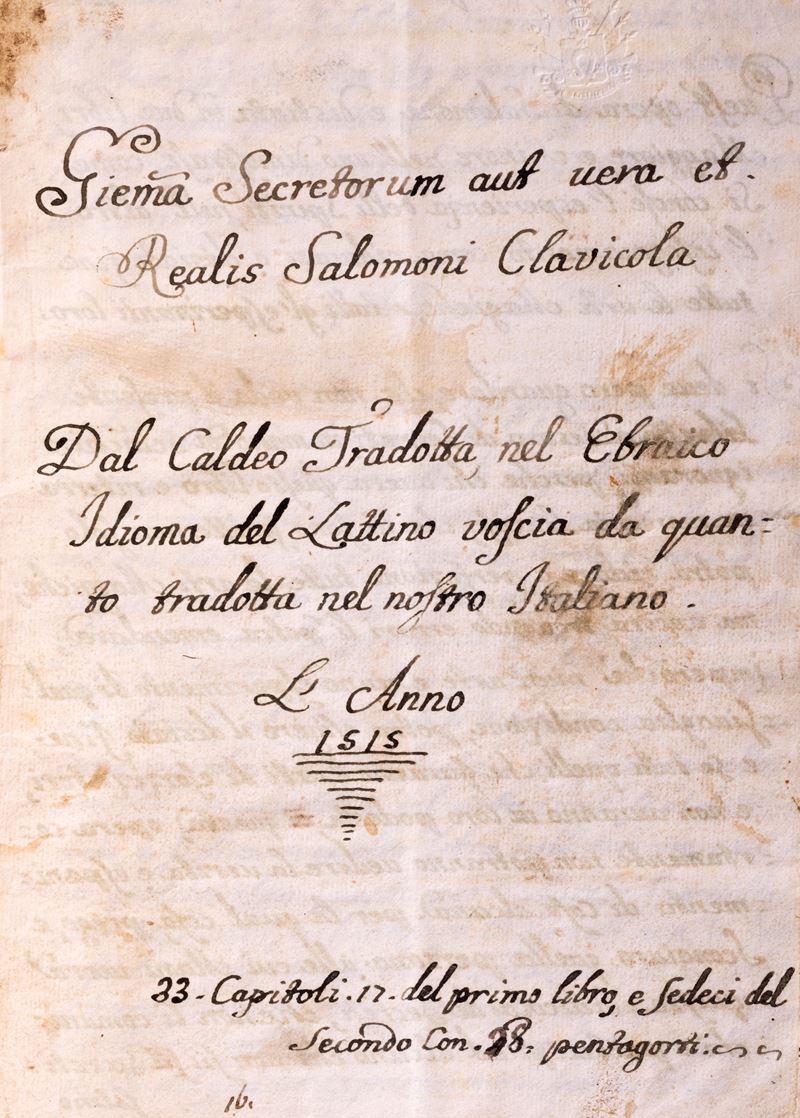 Giema Secretorum aut vera et.
Realis Salomoni Clavicola
Dal Caldeo Tradotta nel Ebraico
Idioma del Lattino voſcia da quan=
to tradotta nel noſtro Italiano.
L' Anno
1515
33. Capitoli. 17. del primo libro, e Sedeci del
Secondo Con. 28: pentagorti.
16.